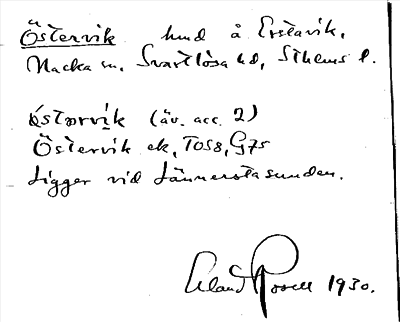 Östervik hmd å Erstavik.
Nacka sn. Svartlösa hd, Sthems l.
östərvik (äv. acc. 2)
Östervik ek, TOS8, G75
Ligger vid Lännerstasunden.
Erland Rosell 1930.